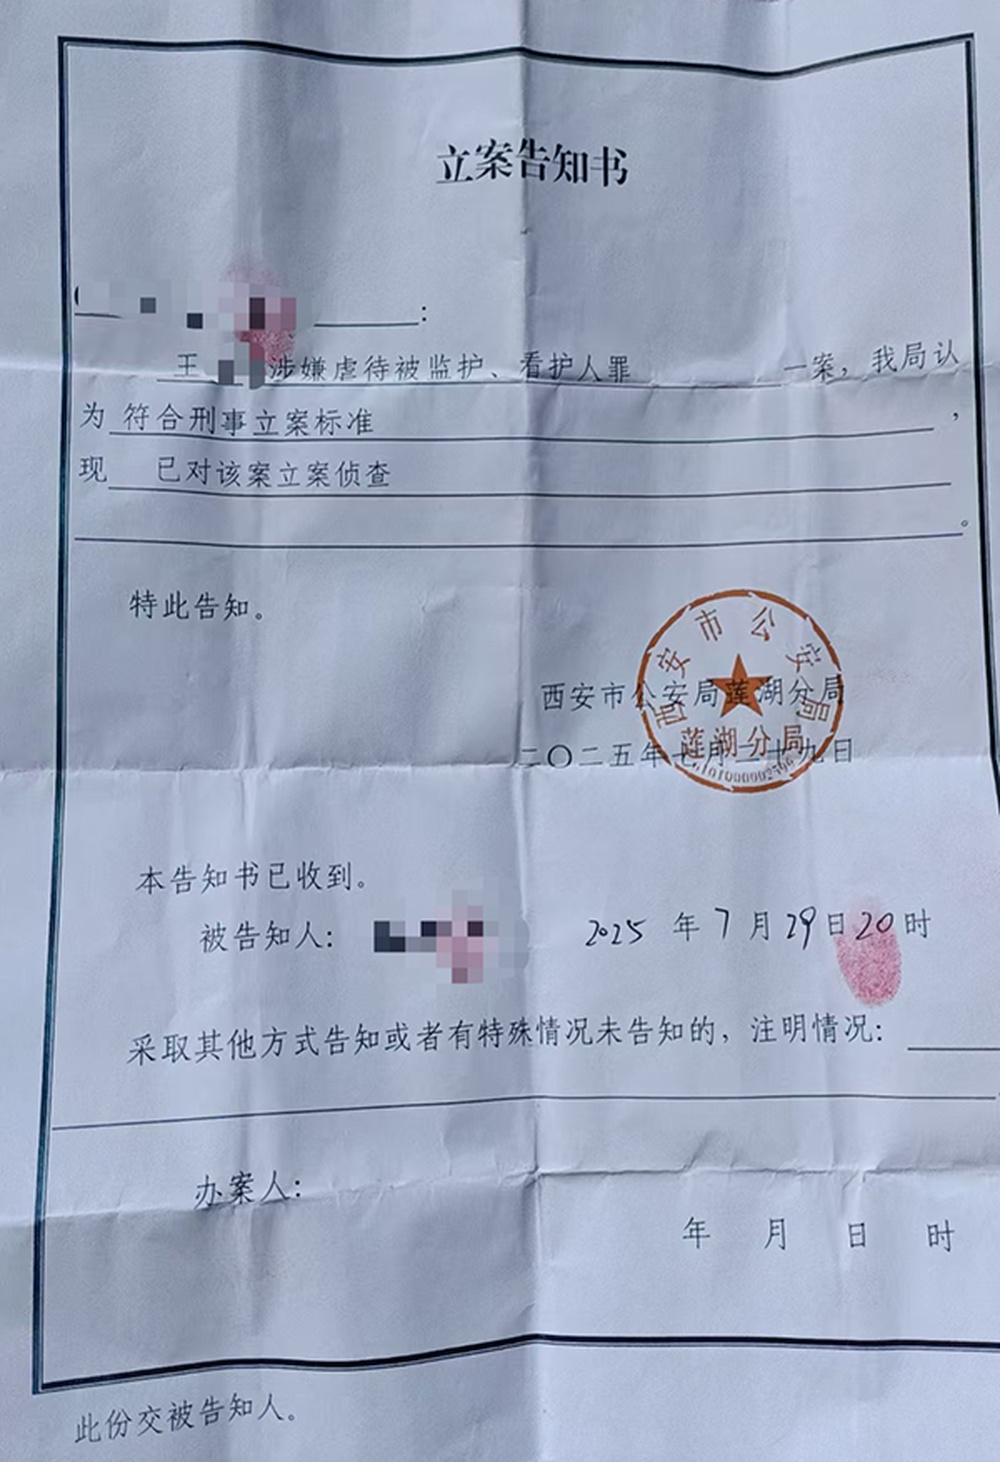 立案告知书
:
王 涉嫌虐待被监护、看护人罪 一案，我局认
为 符合刑事立案标准 ，
现 已对该案立案侦查
。
特此告知。
西安市公安局
莲湖分局
西安市公安局莲湖分局
二〇二五年七月二十九日
本告知书已收到。
被告知人: 2025 年 7 月 29 日 20 时
采取其他方式告知或者有特殊情况未告知的，注明情况:
办案人:
年 月 日 时
此份交被告知人。